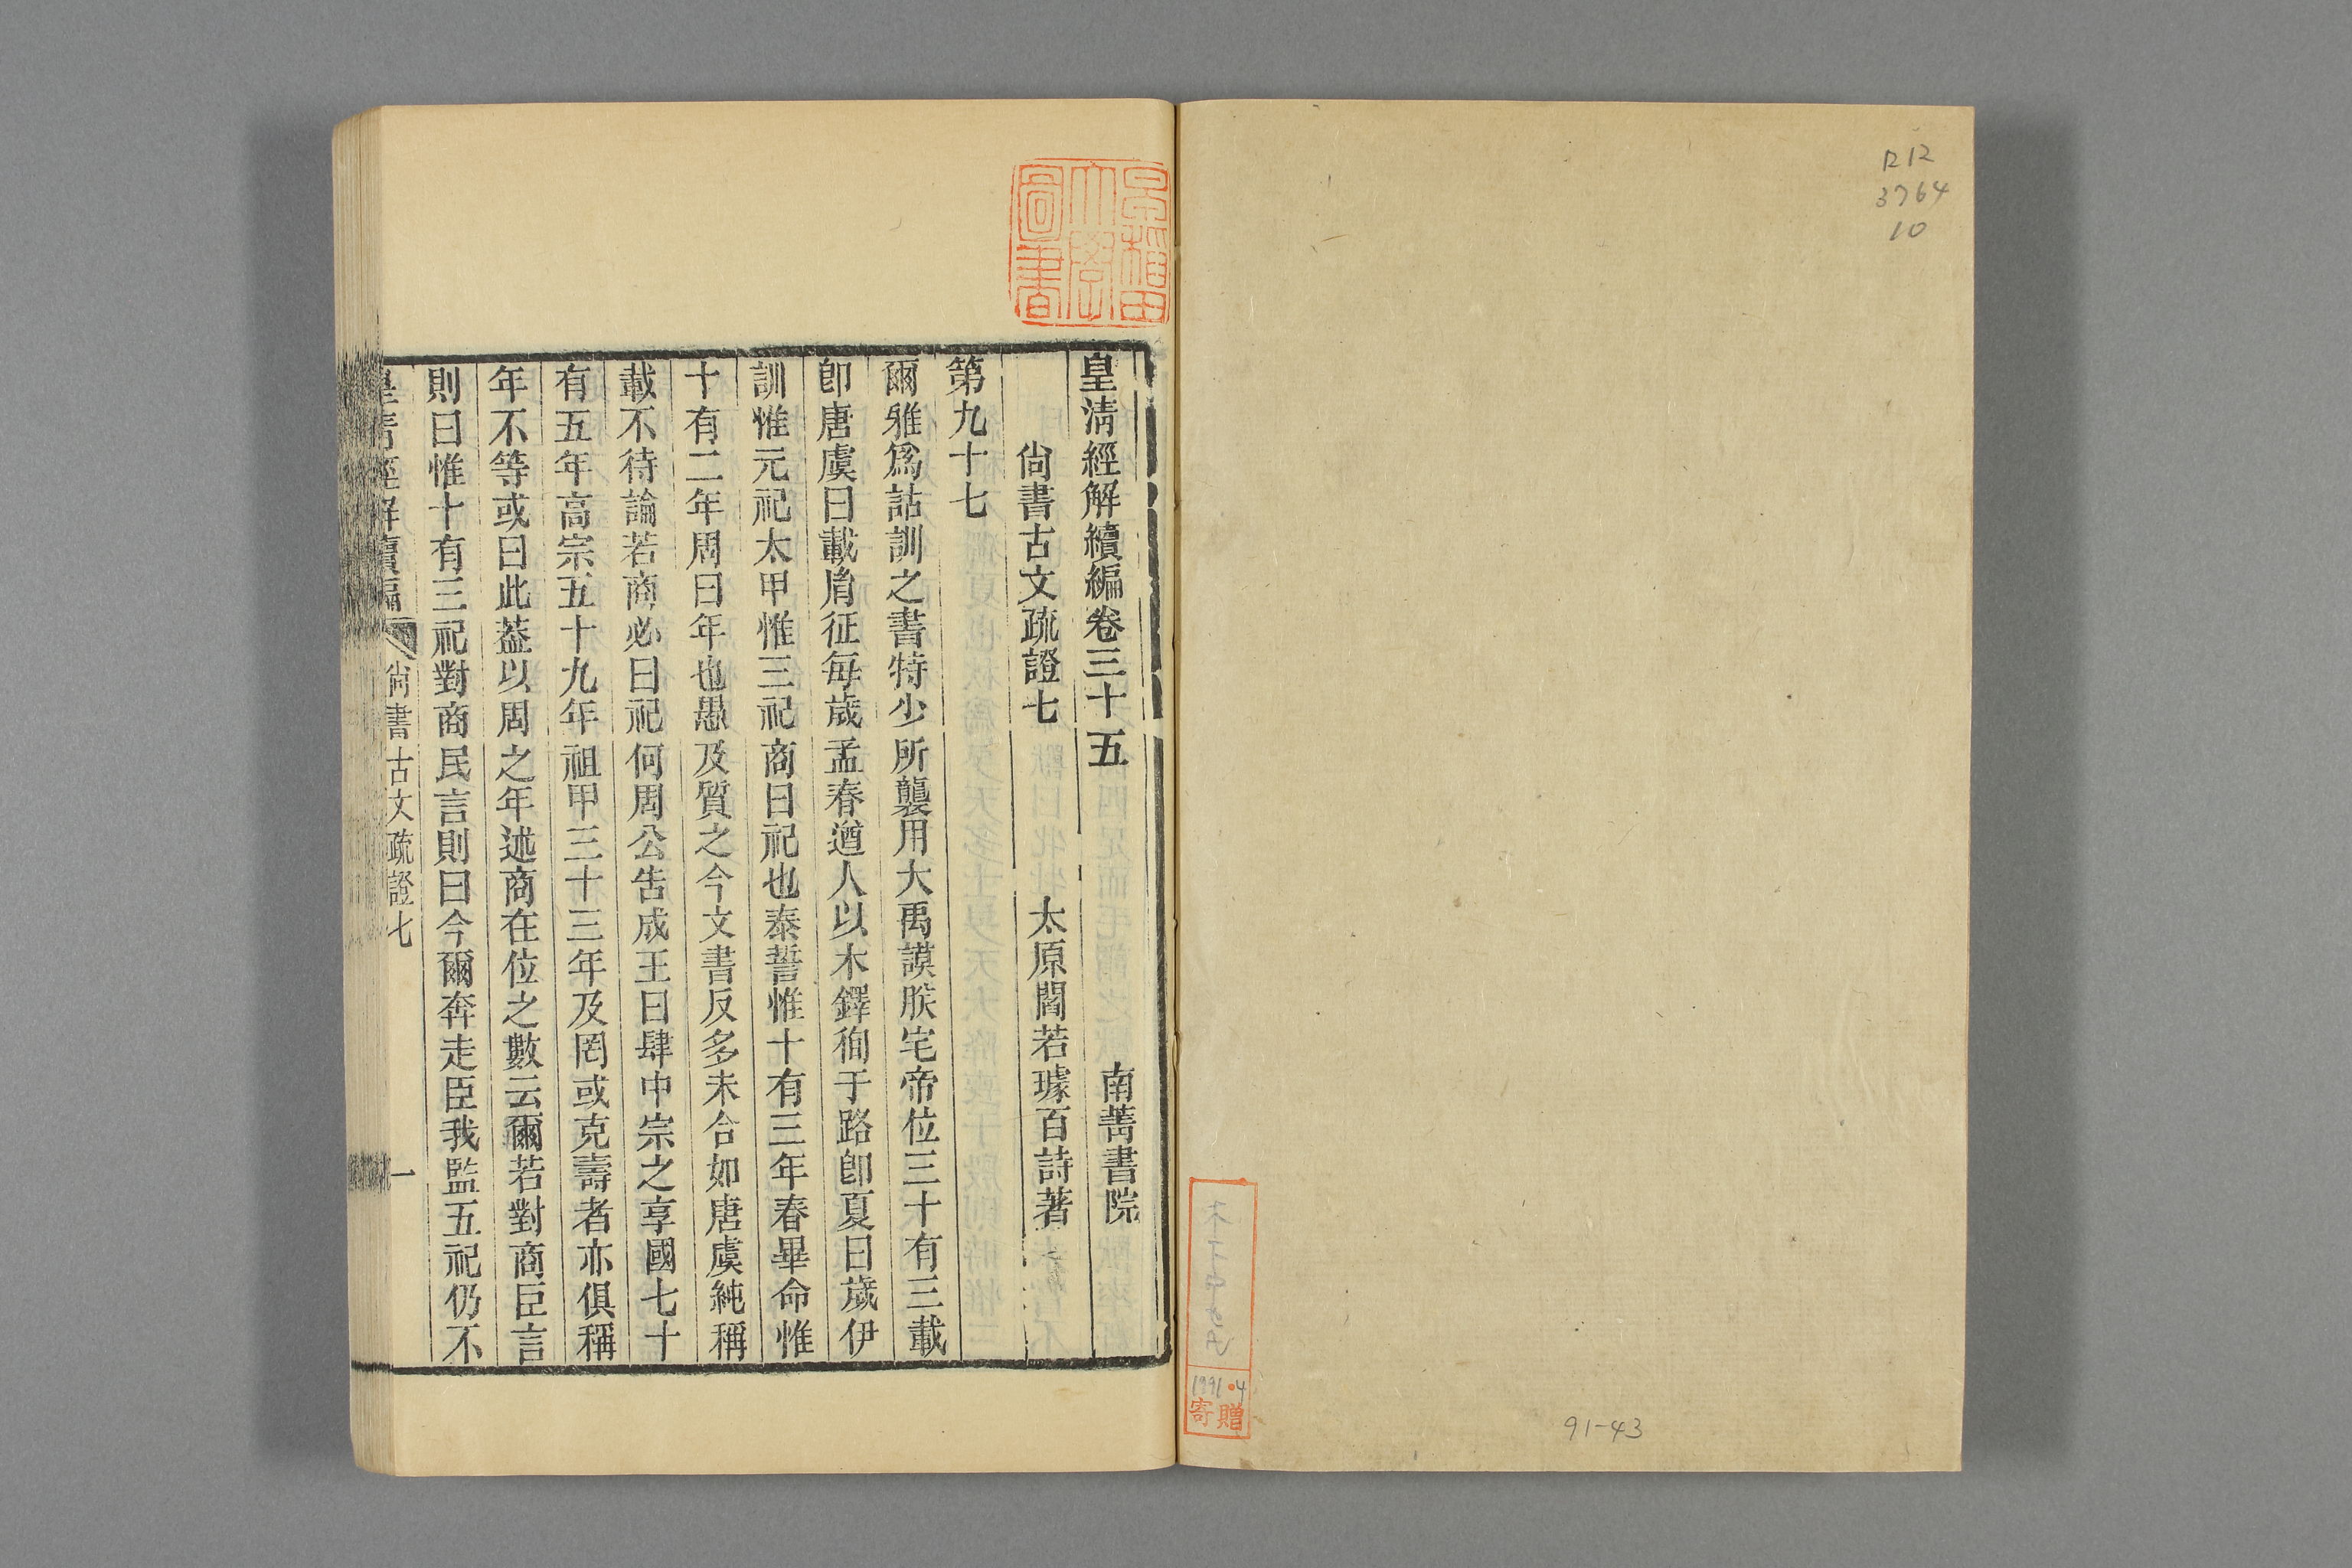 R12
3764
10
1991.4
寄贈
91-43
早稲田大學圖書
皇清經解續編卷三十五 南菁書院
尙書古文疏證七 太原閻若璩百詩著
第九十七
爾雅爲詁訓之書特少所襲用大禹謨朕宅帝位三十有三載
卽唐虞曰載胤征每歲孟春遒人以木鐸徇于路卽夏曰歲伊
訓惟元祀太甲惟三祀商曰祀也泰誓惟十有三年春畢命惟
十有二年周曰年也愚及質之今文書反多未合如唐虞純稱
載不待論若商必曰祀何周公告成王曰肆中宗之享國七十
有五年高宗五十九年祖甲三十三年及罔或克壽者亦俱稱
年不等或曰此葢以周之年述商在位之數云爾若對商臣言
則曰惟十有三祀對商民言則曰今爾奔走臣我監五祀仍不
皇清經解續編 尙書古文疏證七 一